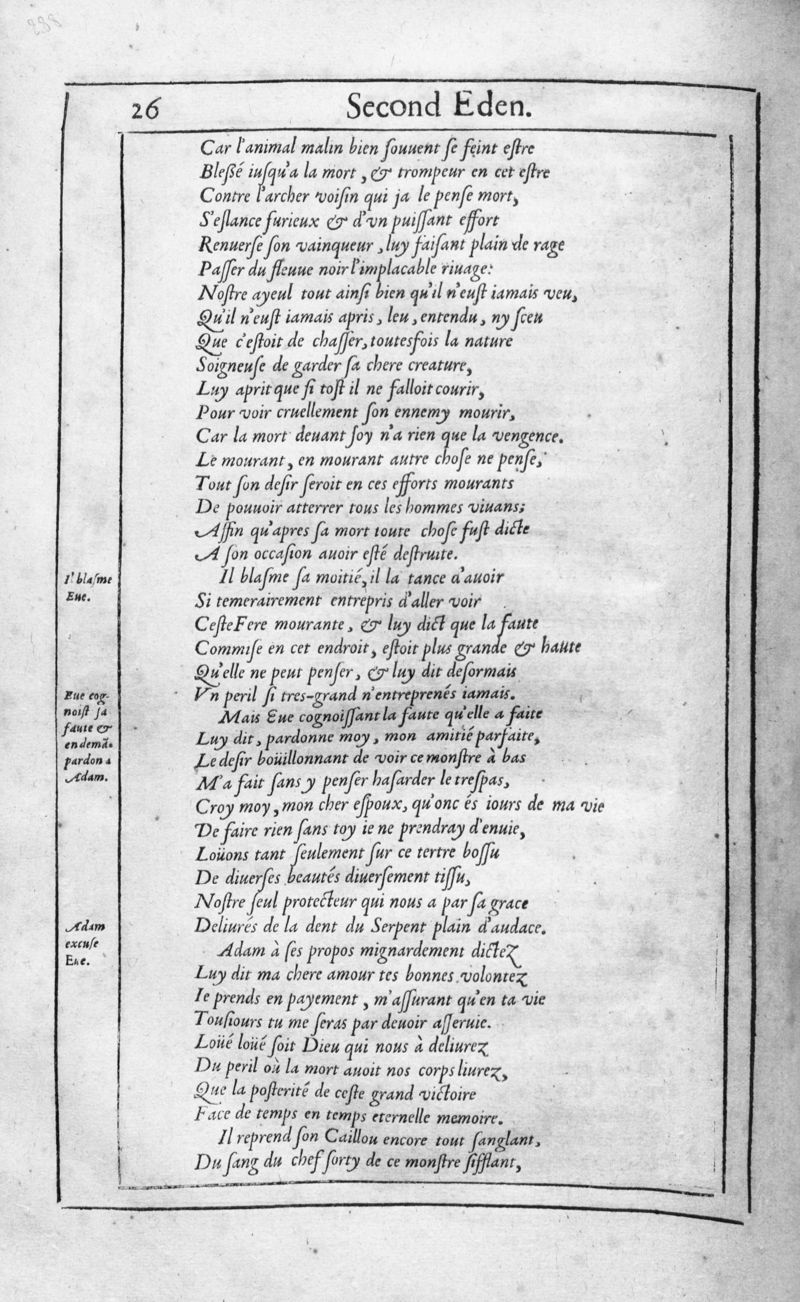 288
26
Second Eden.
Car l'animal malin bien ſouuent ſe feint eſtre
Bleßé iuſqu'a la mort, & trompeur en cet eſtre
Contre l'archer voiſin qui ja le penſe mort,
S'eſlance furieux & d'vn puiſſant effort
Renuerſe ſon vainqueur, luy faiſant plain de rage
Paſſer du fleuue noir l'implacable riuage:
Noſtre ayeul tout ainſi bien qu'il n'euſt iamais veu,
Qu'il n'euſt iamais apris, leu, entendu, ny ſceu
Que c'eſtoit de chaſſer, toutesfois la nature
Soigneuſe de garder ſa chere creature,
Luy aprit que ſi toſt il ne falloit courir,
Pour voir cruellement ſon ennemy mourir,
Car la mort deuant ſoy n'a rien que la vengence.
Le mourant, en mourant autre choſe ne penſe,
Tout ſon deſir ſeroit en ces efforts mourants
De pouuoir atterrer tous les hommes viuans;
Affin qu'apres ſa mort toute choſe fuſt dicte
A ſon occaſion auoir eſté deſtruite.
Il blaſme
Eue.
Il blaſme ſa moitié, il la tance d'auoir
Si temerairement entrepris d'aller voir
Ceſte Fere mourante, & luy dict que la faute
Commiſe en cet endroit, eſtoit plus grande & haute
Qu'elle ne peut penſer, & luy dit deſormais
Vn peril ſi tres-grand n'entreprenés iamais.
Eue cog-
noiſt ſa
faute &
en demã-
pardon a
Adam.
Mais Eue cognoiſſant la faute qu'elle a faite
Luy dit, pardonne moy, mon amitié parfaite,
Le deſir boüillonnant de voir ce monſtre à bas
M'a fait ſans y penſer haſarder le treſpas,
Croy moy, mon cher eſpoux, qu'onc és iours de ma vie
De faire rien ſans toy ie ne prendray d'enuie,
Loüons tant ſeulement ſur ce tertre boſſu
De diuerſes beautés diuerſement tiſſu,
Noſtre ſeul protecteur qui nous a par ſa grace
Deliurés de la dent du Serpent plain d'audace.
Adam
excuſe
Eue.
Adam à ſes propos mignardement dictez
Luy dit ma chere amour tes bonnes volontez
Ie prends en payement, m'aſſurant qu'en ta vie
Touſiours tu me ſeras par deuoir aſſeruie.
Loüé loüé ſoit Dieu qui nous à deliurez
Du peril où la mort auoit nos corps liurez,
Que la poſterité de ceſte grand victoire
Face de temps en temps eternelle memoire.
Il reprend ſon Caillou encore tout ſanglant,
Du ſang du chef ſorty de ce monſtre ſifflant,